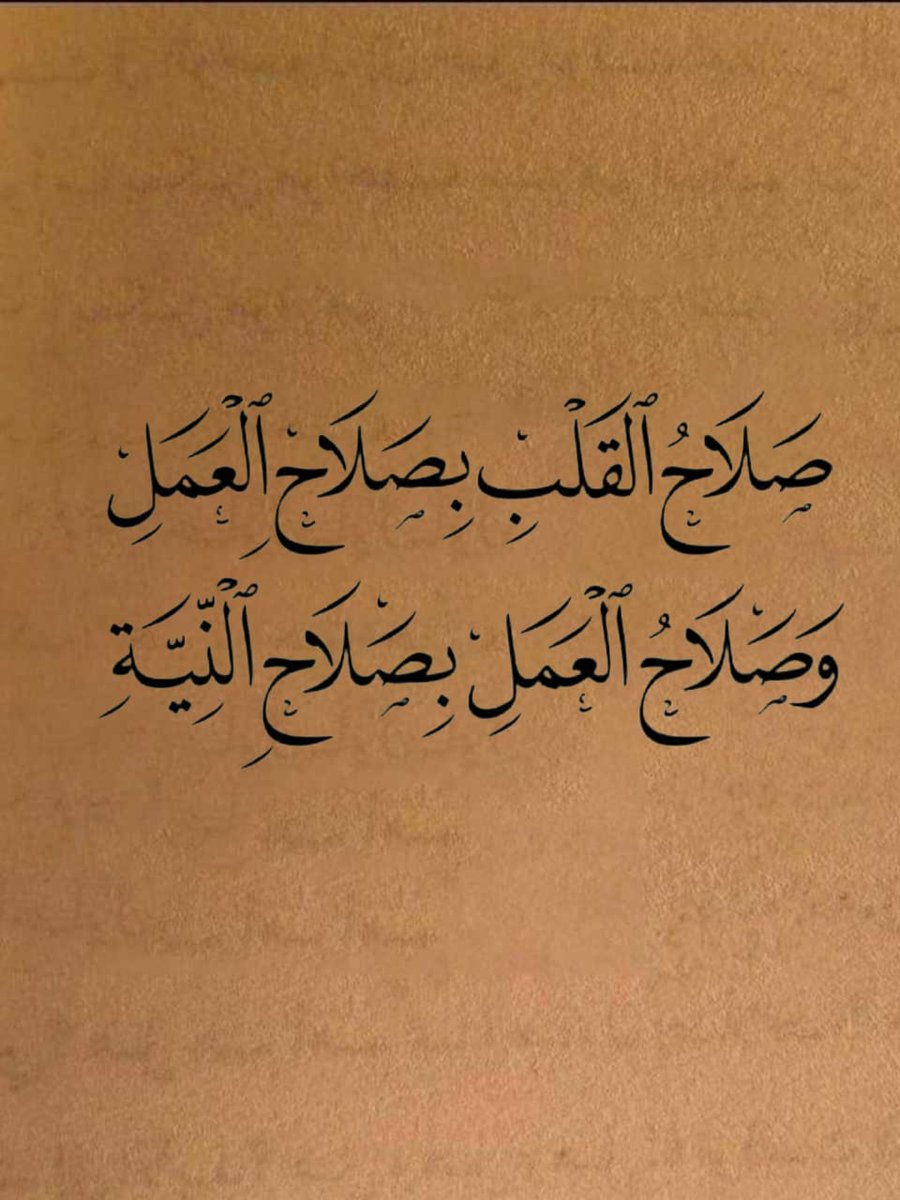 صَلَاحُ ٱلْقَلْبِ بِصَلَاحِ ٱلْعَمَلِ
وَصَلَاحُ ٱلْعَمَلِ بِصَلَاحِ ٱلْنِّيَّةِ